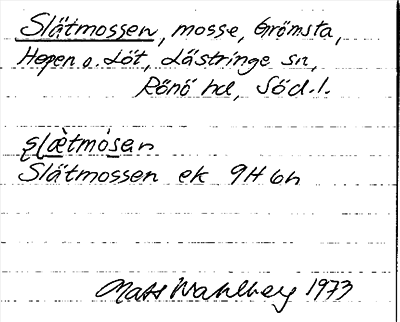 Slätmossen, mosse, Grömsta,
Hagen o. Löt, Lästringe sn,
Rönö hd, Söd.l.
slæ̀tmo̊san
Slätmossen ek 9H 6h
Mats Wahlberg 1973